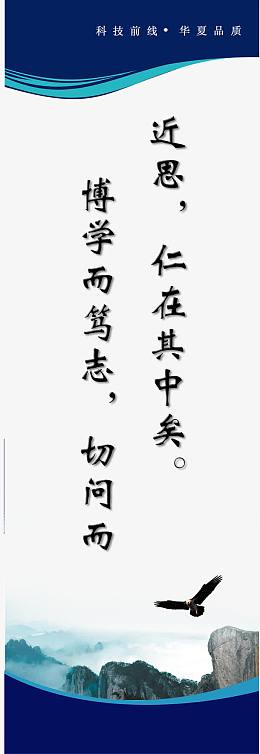 科技前线•华夏品质
博学而笃志，切问而
近思，仁在其中矣。